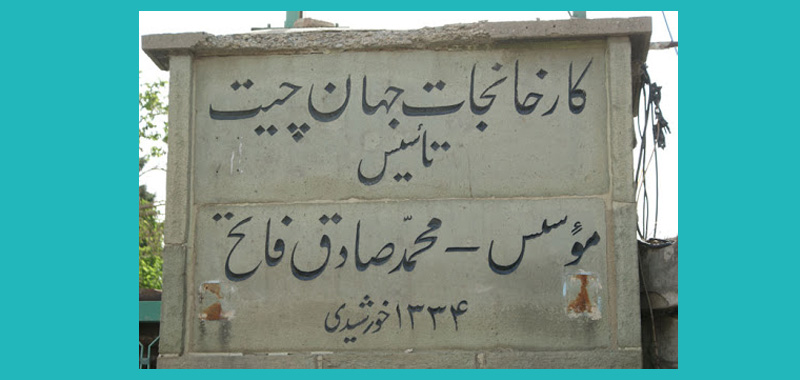 کارخانجات جهان چیت
تأسیس
مؤسس – محمّد صادق فاتح
۱۳۳۴ خورشیدی